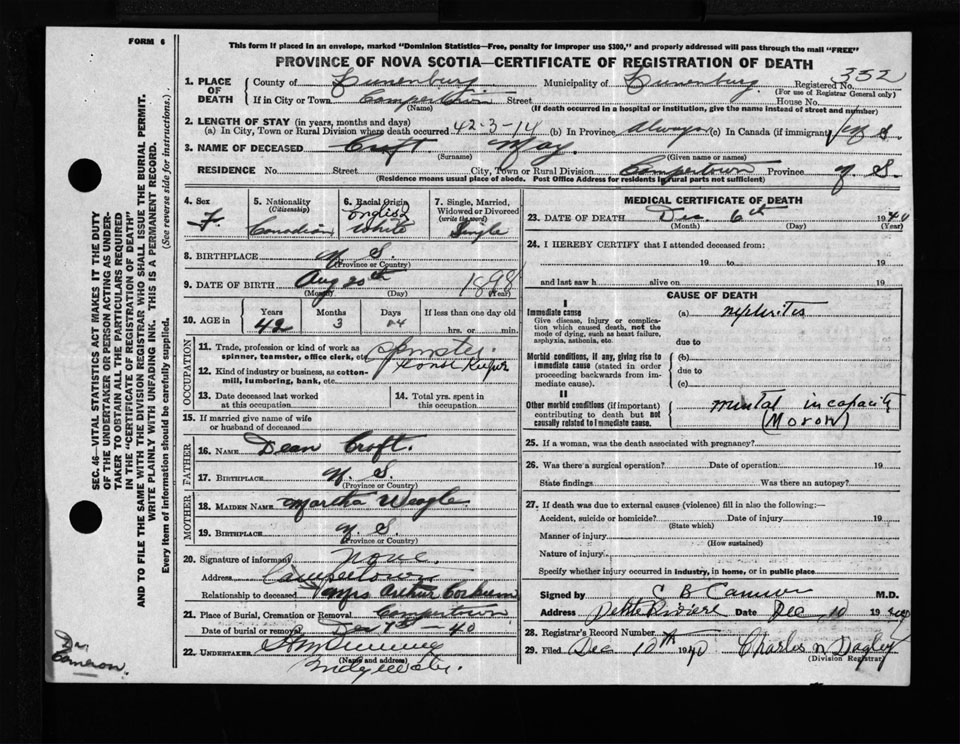 FORM 6
This form if placed in an envelope, marked "Dominion Statistics—Free, penalty for improper use $300," and properly addressed will pass through the mail "FREE"
PROVINCE OF NOVA SCOTIA—CERTIFICATE OF REGISTRATION OF DEATH
1. PLACE OF DEATH County of Lunenburg Municipality of Lunenburg Registered No. 352
(For use of Registrar General only)
If in City or Town Street House No.
(Name) (If death occurred in a hospital or institution, give the name instead of street and number)
2. LENGTH OF STAY (in years, months and days)
(a) In City, Town or Rural Division where death occurred 42-3-14 (b) In Province Always (c) In Canada (if immigrant)
3. NAME OF DECEASED Croft May
(Surname) (Given name or names)
RESIDENCE No. Street City, Town or Rural Division Province N. S.
(Residence means usual place of abode. Post Office Address for residents in rural parts not sufficient)
4. Sex F.
5. Nationality (Citizenship) Canadian
6. Racial Origin English White
7. Single, Married, Widowed or Divorced (write the word) Single
8. BIRTHPLACE N. S.
(Province or Country)
9. DATE OF BIRTH Aug 20th 1898
(Month) (Day) (Year)
10. AGE in Years Months Days If less than one day old
42 3 hrs. or min.
OCCUPATION
11. Trade, profession or kind of work as spinner, teamster, office clerk, etc. Spinster
12. Kind of industry or business, as cotton-mill, lumbering, bank, etc. House Keeper
13. Date deceased last worked at this occupation
14. Total yrs. spent in this occupation
15. If married give name of wife or husband of deceased
FATHER
16. NAME Dean Croft.
17. BIRTHPLACE N. S.
(Province or Country)
MOTHER
18. MAIDEN NAME Martha Weagle
19. BIRTHPLACE N. S.
(Province or Country)
20. Signature of informant
Address
Relationship to deceased Mrs Arthur Corkum
21. Place of Burial, Cremation or Removal
Date of burial or removal Dec 7th - 40
22. UNDERTAKER
(Name and address)
Bridgewater.
MEDICAL CERTIFICATE OF DEATH
23. DATE OF DEATH Dec. 6th 1940
(Month) (Day) (Year)
24. I HEREBY CERTIFY that I attended deceased from:
19 to 19
and last saw h alive on 19
CAUSE OF DEATH
I
Immediate cause
Give disease, injury or complication which caused death, not the mode of dying, such as heart failure, asphyxia, asthenia, etc.
(a) nephritis
due to
Morbid conditions, if any, giving rise to immediate cause (stated in order proceeding backwards from immediate cause).
(b)
due to
(c)
II
Other morbid conditions (if important) contributing to death but not causally related to immediate cause.
mental incapacity
(Moron)
25. If a woman, was the death associated with pregnancy?
26. Was there a surgical operation? Date of operation 19
State findings Was there an autopsy?
27. If death was due to external causes (violence) fill in also the following:—
Accident, suicide or homicide? Date of injury 19
(State which)
Manner of injury
(How sustained)
Nature of injury
Specify whether injury occurred in industry, in home, or in public place
Signed by C B Cameron M.D.
Address Petite Riviere Date Dec 10 1940
28. Registrar's Record Number
29. Filed Dec 10th 1940 Charles N Dagley
(Division Registrar)
SEC. 46—VITAL STATISTICS ACT MAKES IT THE DUTY
OF THE UNDERTAKER OR PERSON ACTING AS UNDER-
TAKER TO OBTAIN ALL THE PARTICULARS REQUIRED
IN THE "CERTIFICATE OF REGISTRATION OF DEATH"
AND TO FILE THE SAME WITH THE DIVISION REGISTRAR WHO SHALL ISSUE THE BURIAL PERMIT.
WRITE PLAINLY WITH UNFADING INK. THIS IS A PERMANENT RECORD.
Every item of information should be carefully supplied. (See reverse side for instructions.)
Dr.
Cameron.